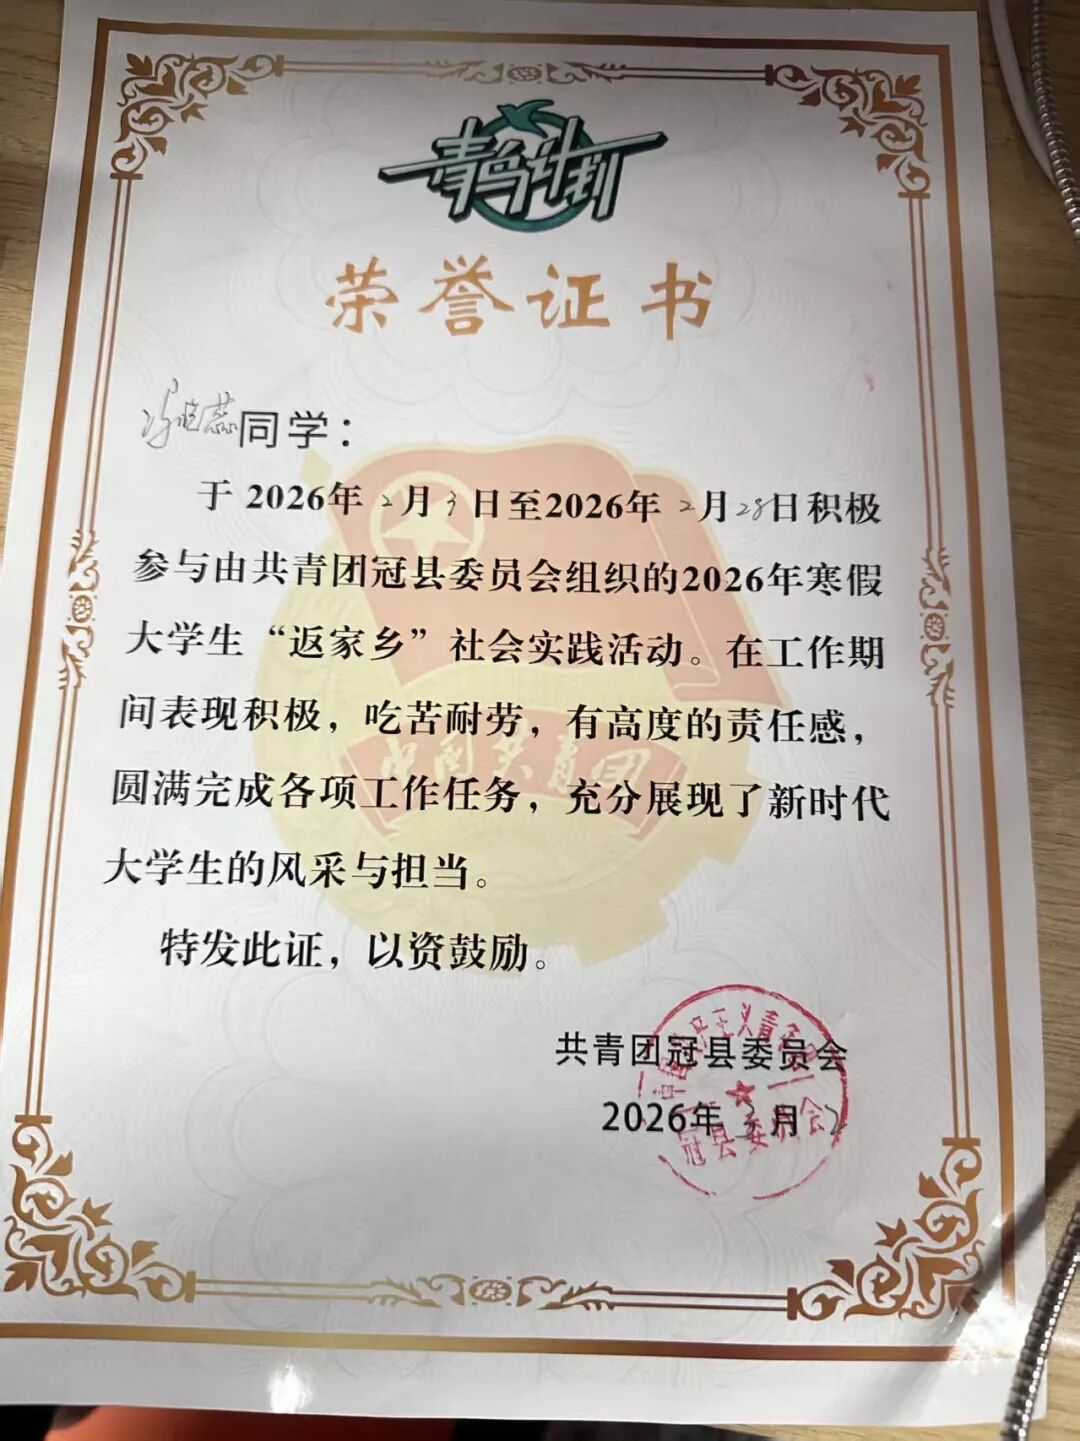 青鸟计划
荣誉证书
冯晓蕊同学：
于 2026年 2月 3日至2026年 2月28日积极
参与由共青团冠县委员会组织的2026年寒假
大学生“返家乡”社会实践活动。在工作期
间表现积极，吃苦耐劳，有高度的责任感，
圆满完成各项工作任务，充分展现了新时代
大学生的风采与担当。
特发此证，以资鼓励。
中国共青团
共青团冠县委员会
2026年 3月 2
冠县委员会